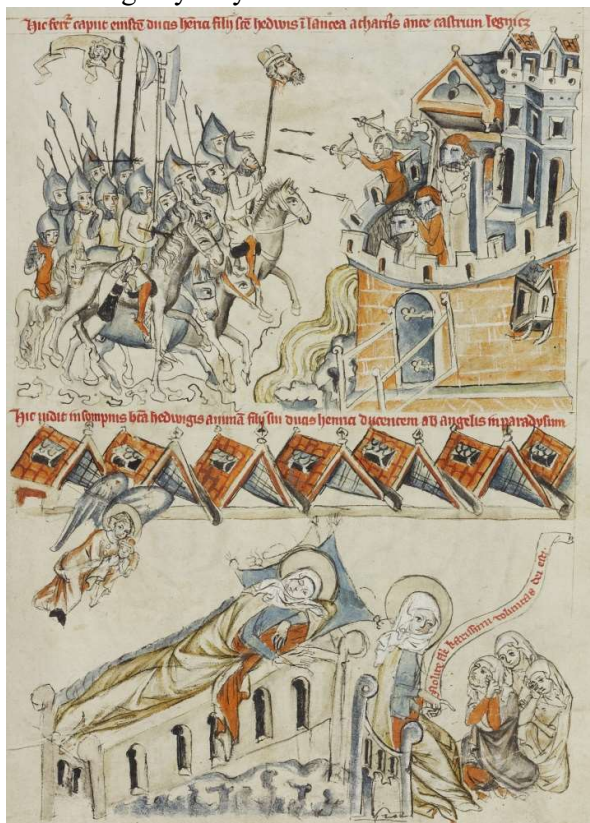 Hic fert̃ caput eiusdẽ ducis hẽrici filij sc̃e hedwis ĩ lancea a thartĩs ante castrum legnicz
Hic uidit in sompnis bc̃a hedwigis animã filij sui ducis henrici ducentem ab angelis in paradysum
Nolite flẽ karissimi voluntas dei est